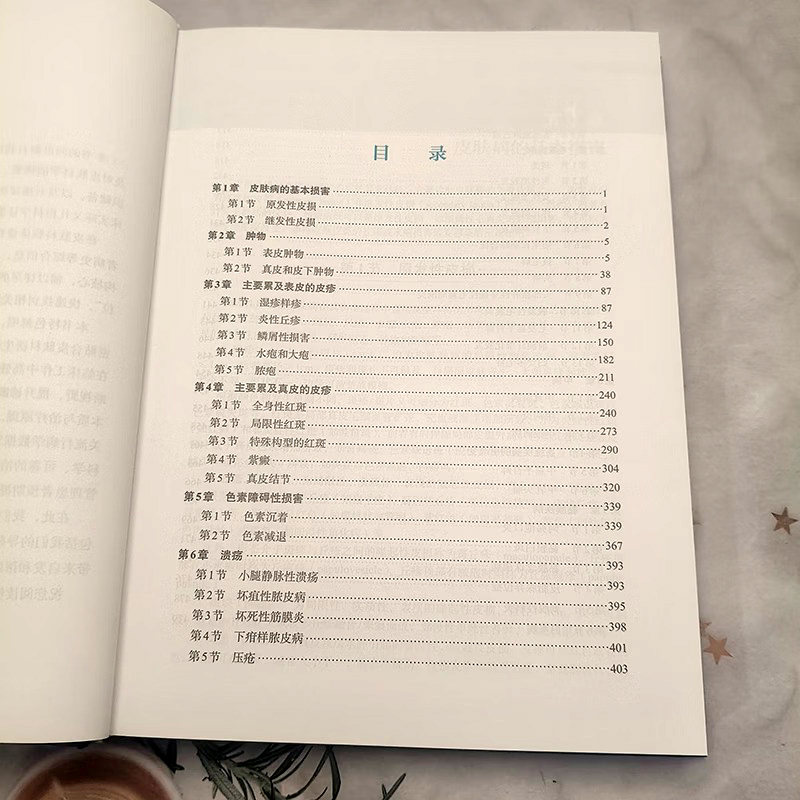 目 录
第1章 皮肤病的基本损害 1
第1节 原发性皮损 1
第2节 继发性皮损 2
第2章 肿物 5
第1节 表皮肿物 5
第2节 真皮和皮下肿物 38
第3章 主要累及表皮的皮疹 87
第1节 湿疹样疹 87
第2节 炎性丘疹 124
第3节 鳞屑性损害 150
第4节 水疱和大疱 182
第5节 脓疱 211
第4章 主要累及真皮的皮疹 240
第1节 全身性红斑 240
第2节 局限性红斑 273
第3节 特殊构型的红斑 290
第4节 紫癜 304
第5节 真皮结节 320
第5章 色素障碍性损害 339
第1节 色素沉着 339
第2节 色素减退 367
第6章 溃疡 393
第1节 小腿静脉性溃疡 393
第2节 坏疽性脓皮病 395
第3节 坏死性筋膜炎 398
第4节 下疳样脓皮病 401
第5节 压疮 403